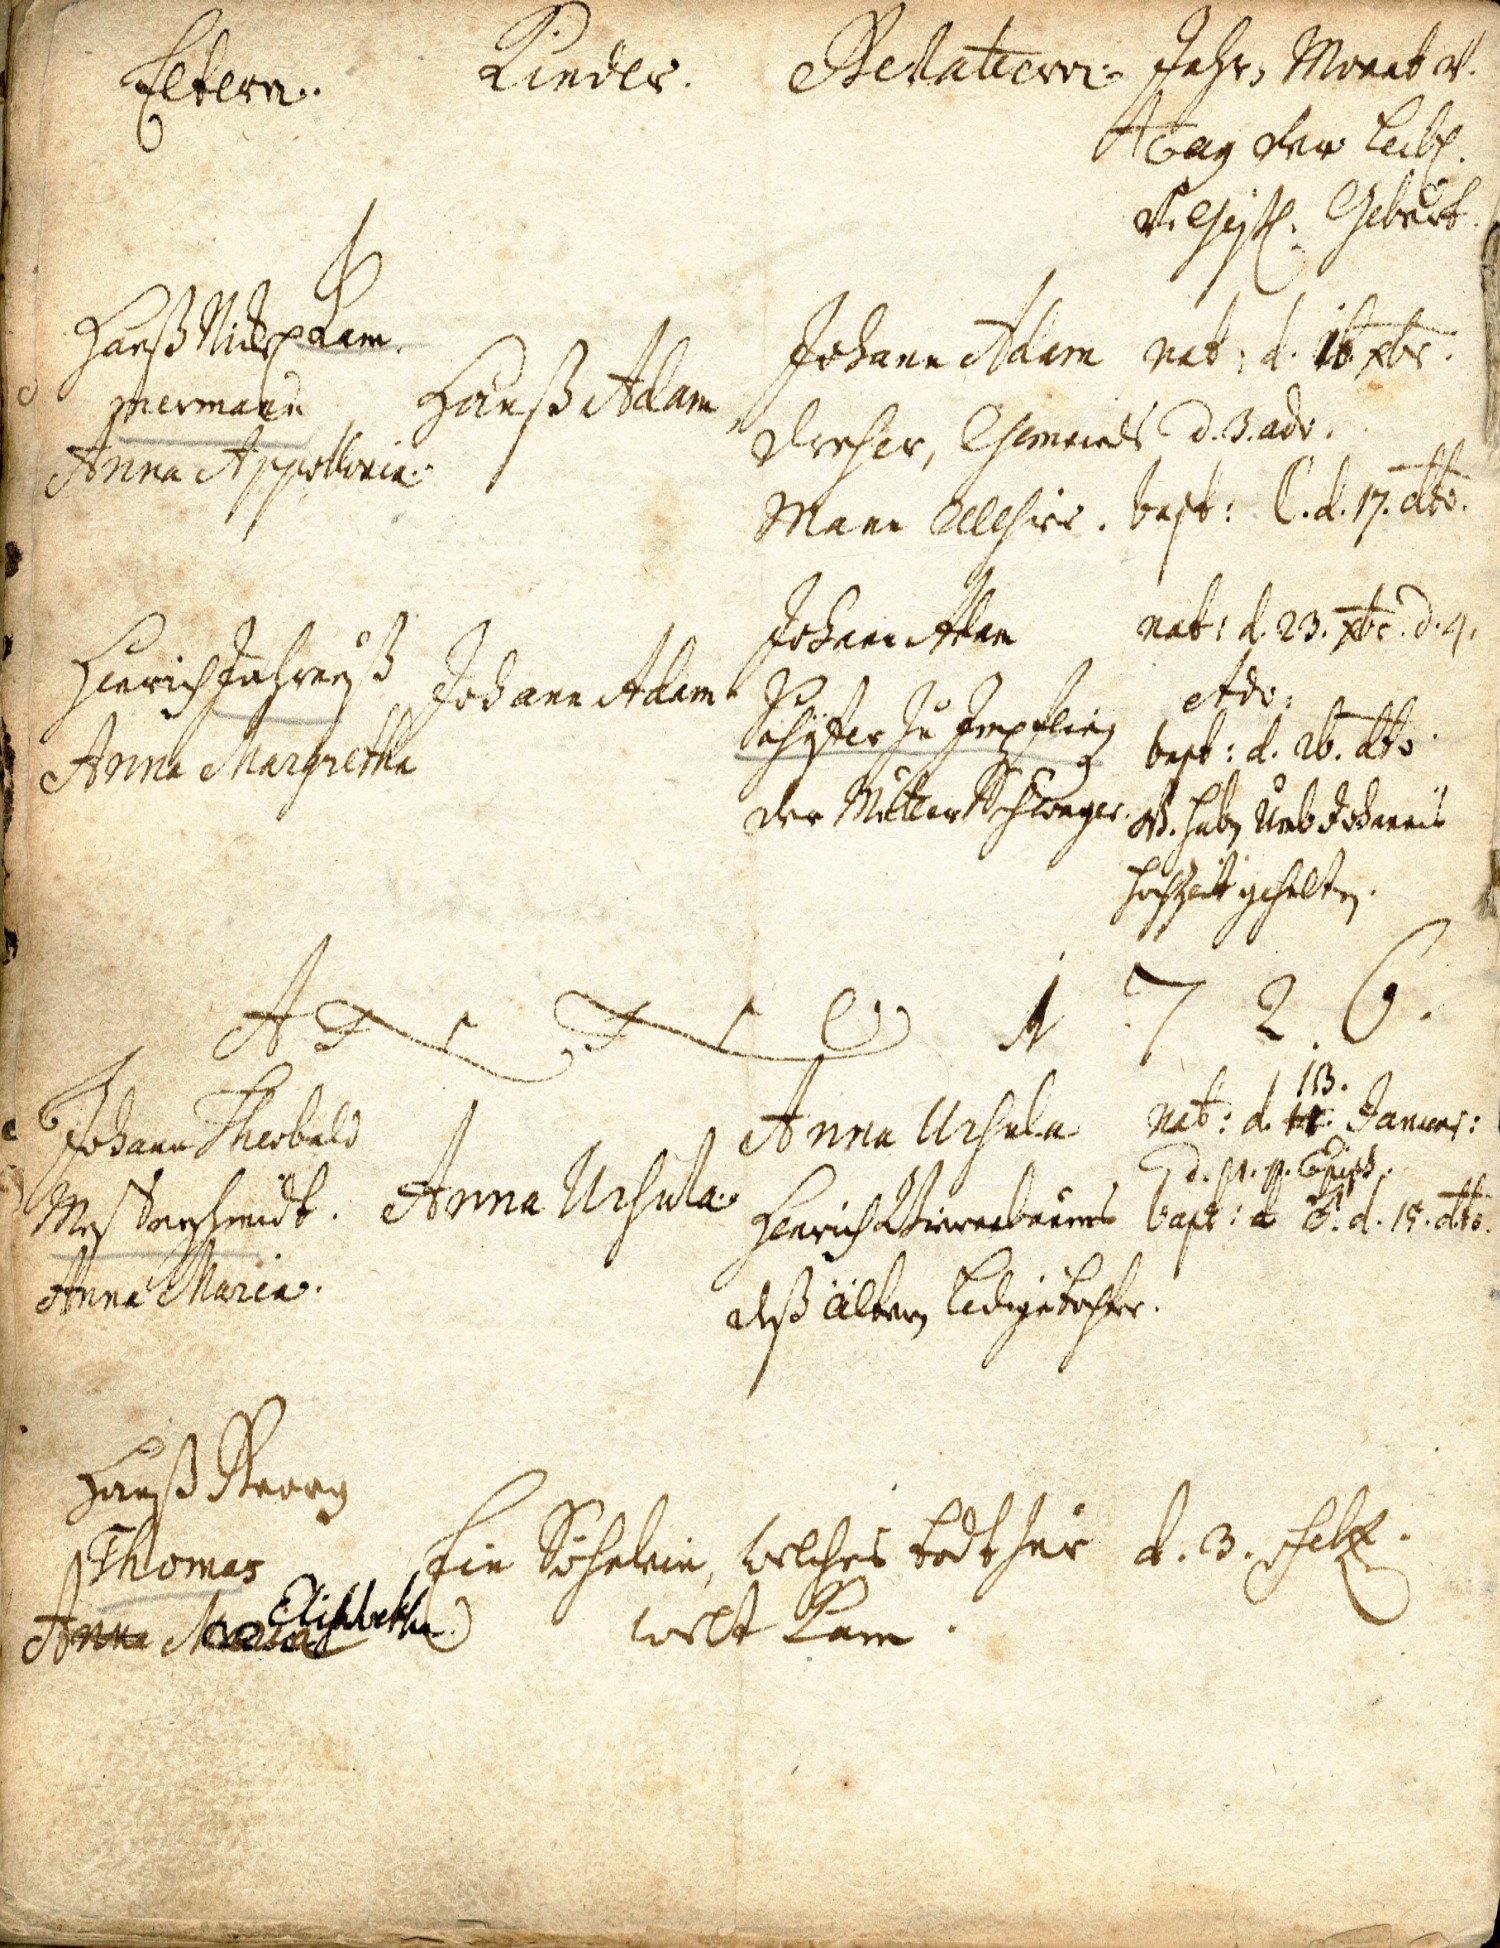 Eltern. Kinder. Gevattern. Jahr, Monat u.
Tag der leibl.
u. Geistl. Geburt.
Hanß Nickel Kam-
mermann
Anna Appollonia.
Hanß Adam
Johann Adam
Dreher, Gemeinds
Mann allhier.
nat: d. 16 xbr.
d. 3. adv.
bapt: C. d. 17. dto.
Henrich
Anna Margretha
Johann Adam
Johann Adam
zu Impfling
der Mutter Schwager.
nat: d. 23. xbr. d. 4.
Adv:
bapt: d. 26. dto
Umb Johannis
Hochzeit gehalten.
1 7 2 6.
Johann Theobald
Anna Maria.
Anna Ursula
Anna Ursula
Henrich
deß ältern ledige Tochter.
nat: d. 13. Januar:
d. 1. p. Epiph.
bapt: d. 15. dto.
Hanß Georg
Thomas
Anna Maria Elisabetha
Ein Söhnlein, welches todt zur
welt kam.
d. 3. Febr.